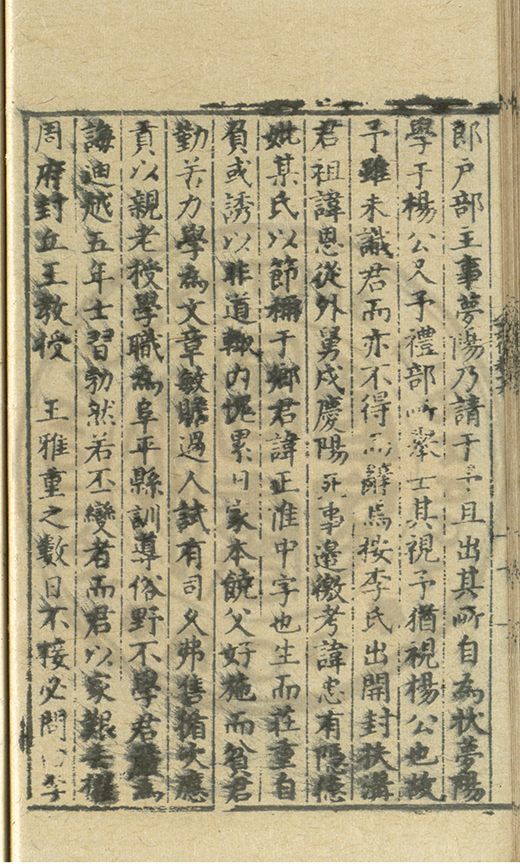 郎户部主事夢陽乃請于予且出其所自為狀夢陽
學于楊公又予禮部所舉士其視予猶視楊公也故
予雖未識君而亦不得而辭焉按李氏出開封扶溝
君祖諱恩從外舅戍慶陽死事邊徼考諱忠有隱德
妣某氏以節稱于鄉君諱正惟中字也生而莊重自
負或誘以非道輙内愧累日家本饒父好施而貧君
勤苦力學為文章敏贍過人試有司久弗售循次應
貢以親老授學職為阜平縣訓導俗野不學君嚴為
誨迪越五年士習勃然若丕變者而君以家艱去擢
周府封丘王教授　王雅重之數日不接必問曰李